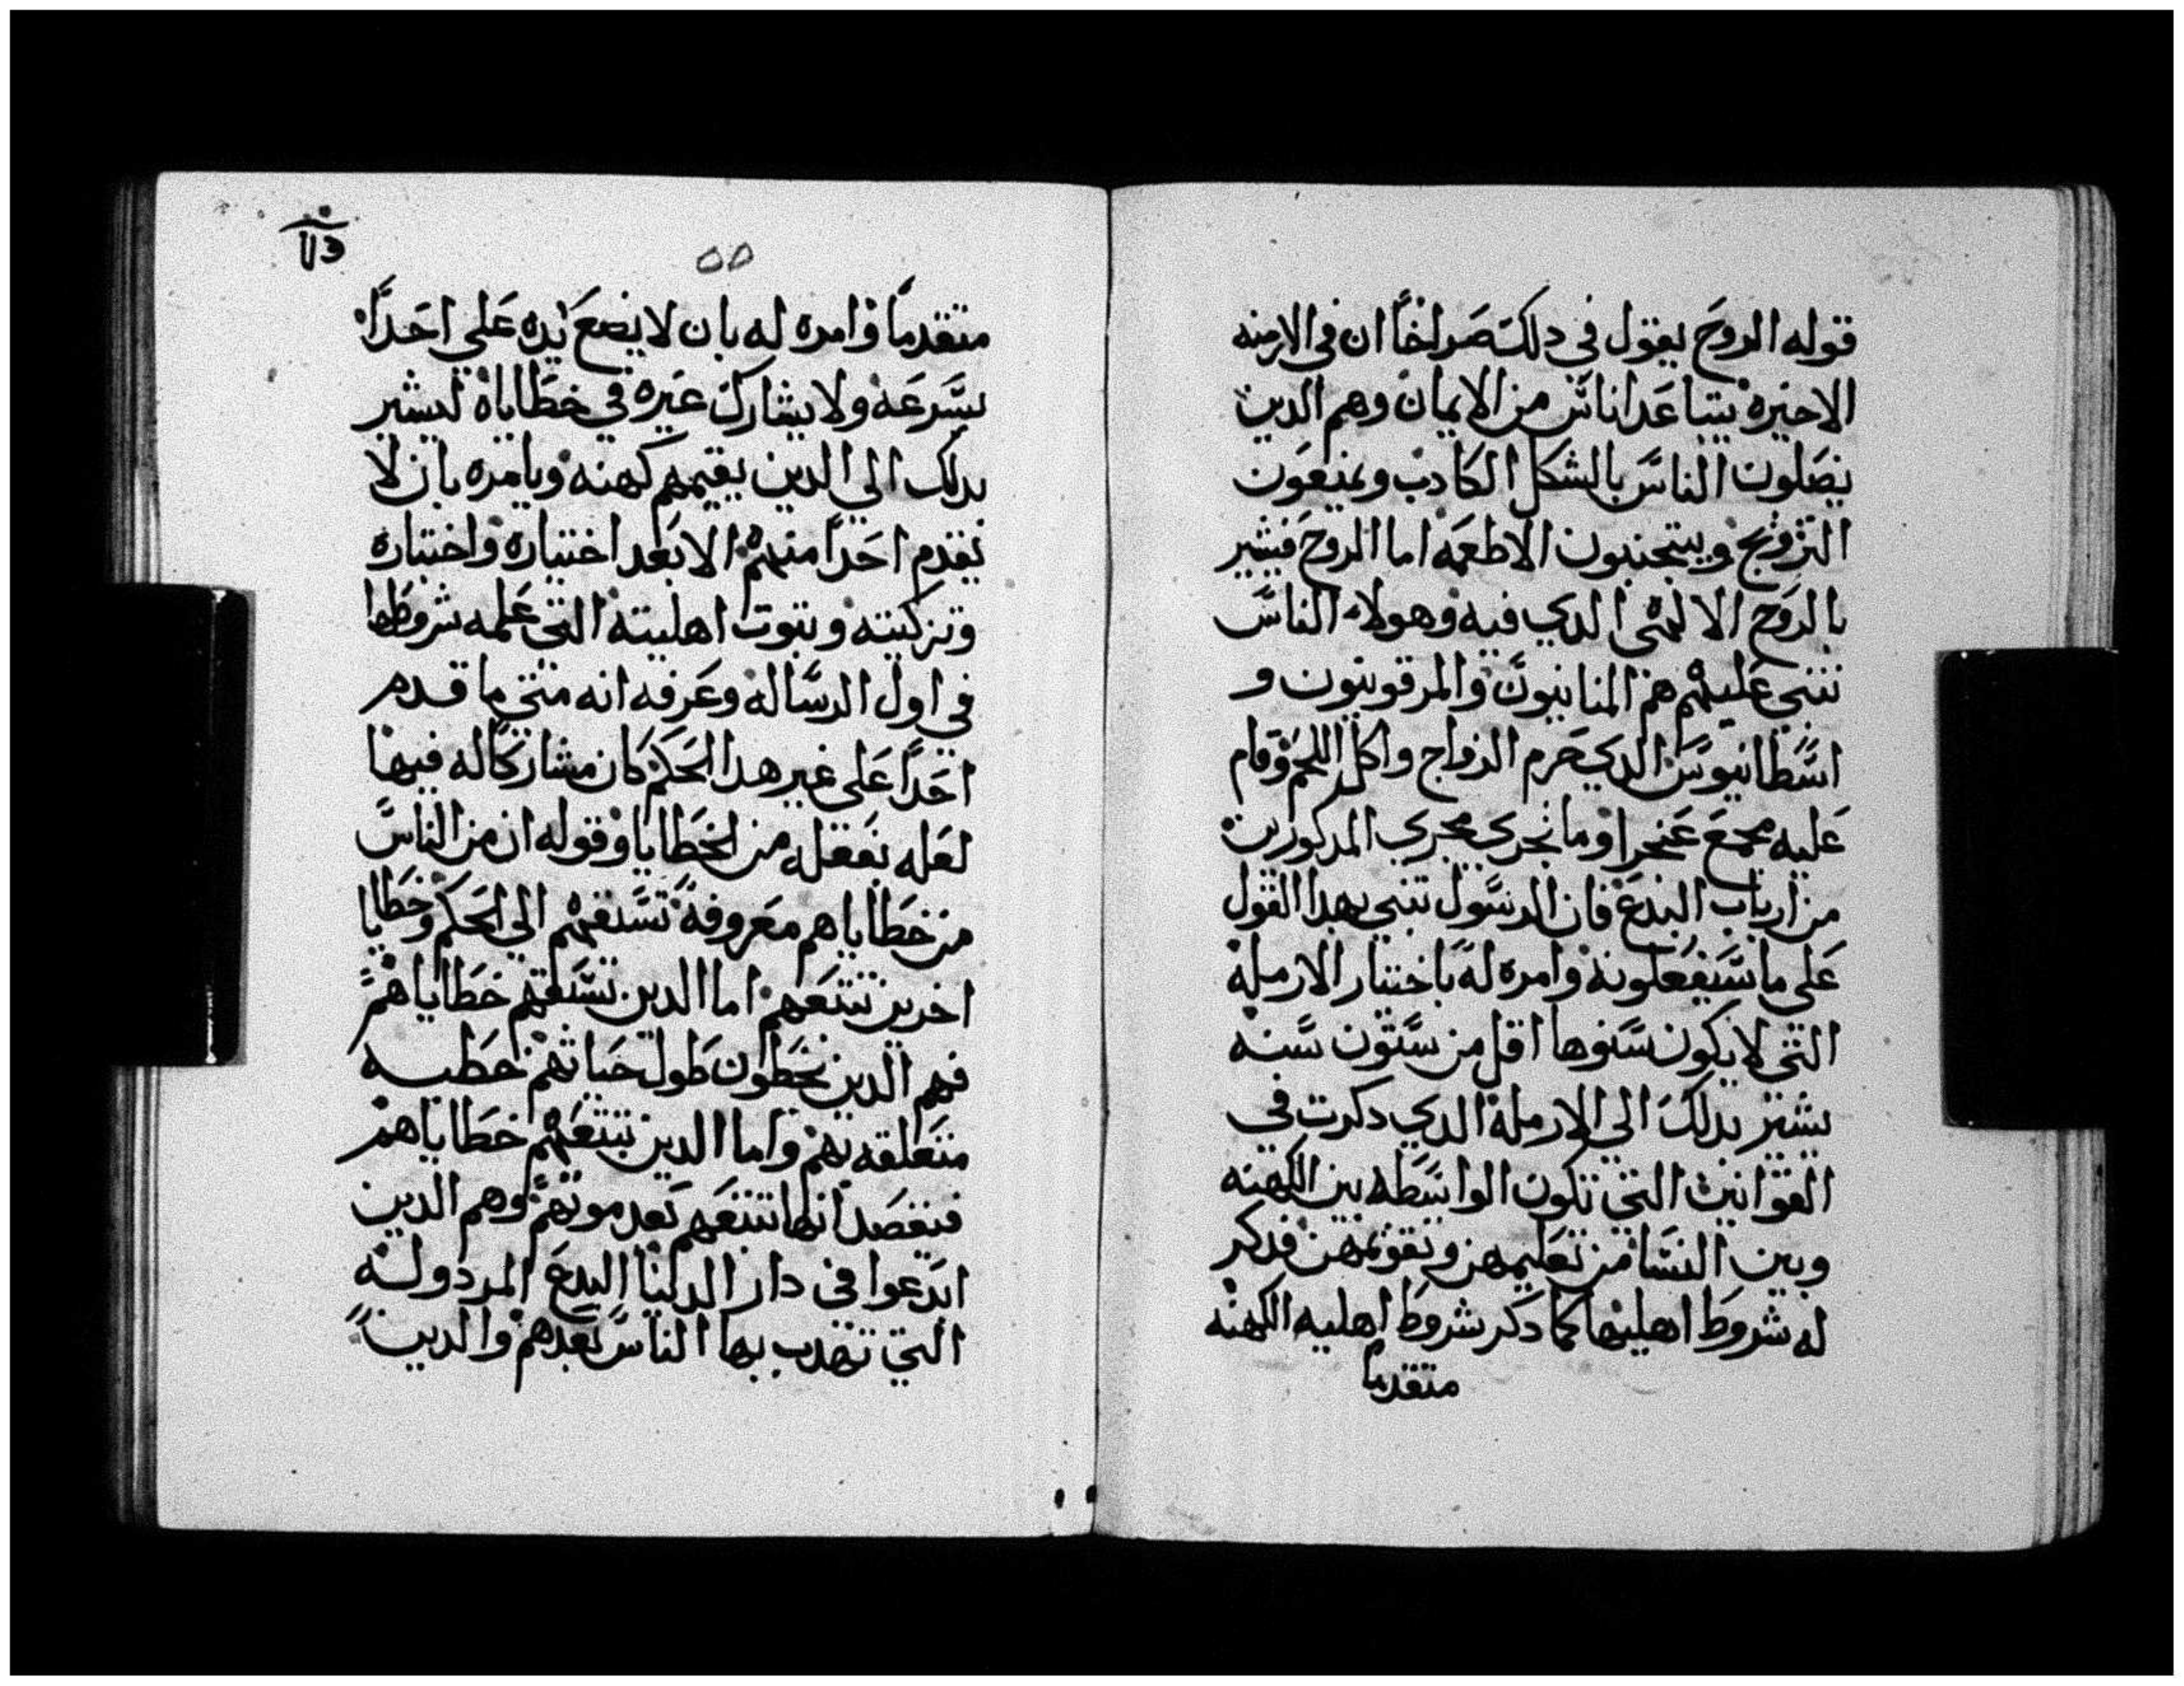 قوله الروح يقول في دلك صراخا ان في الازمنه
الاخيره يتباعد اناس من الايمان وهم الدين
يضلون الناس بالشكل الكادب ويمنعون
التزويج ويتجنبون الاطعمه اما الروح فيشير
بالروح الالهى الدي فيه وهولاء الناس
تنبي عليهم هم المنانيون والمرقونيون و
اسطانيوس الدي حرم الزواج واكل اللحم وقام
عليه مجمع غنجرا وما يجري مجري المدكورين
من ارباب البدع فان الرسول تنبي بهدا القول
على ما سيفعلونه وامره له باختيار الارمله
التي لا يكون سنوها اقل من ستون سنه
يشير بدلك الي الارمله الدي دكرت في
القوانين التي تكون الواسطه بين الكهنه
وبين النسا من تعليمهن وتقويمهن فدكر
له شروط اهليتها كما دكر شروط اهليه الكهنه
متقدما
متقدما وامره له بان لا يضع يده علي احدا
بسرعه ولا يشارك غيره في خطاياه ليشير
بدلك الي الدين يقيمهم كهنه ويامره بان لا
يقدم احدا منهم الا بعد اختباره واختباره
وتزكيته وثبوت اهليته التي علمه شروطها
في اول الرساله وعرفه انه متي ما قدم
احدا على غير هدا الحكم كان مشاركا له فيها
لعله يفعله من الخطايا وقوله ان من الناس
من خطاياهم معروفه تسبقهم الي الحكم وخطايا
اخرين تتبعهم اما الدين تسبقهم خطاياهم
فهم الدين يخطون طول حياتهم خطيه
متعلقه بهم واما الدين تتبعهم خطاياهم
فيقصد انها تتبعهم بعد موتهم وهم الدين
ابتدعوا في دار الدنيا البدع المردوله
التي تهدب بها الناس بعدهم والدين